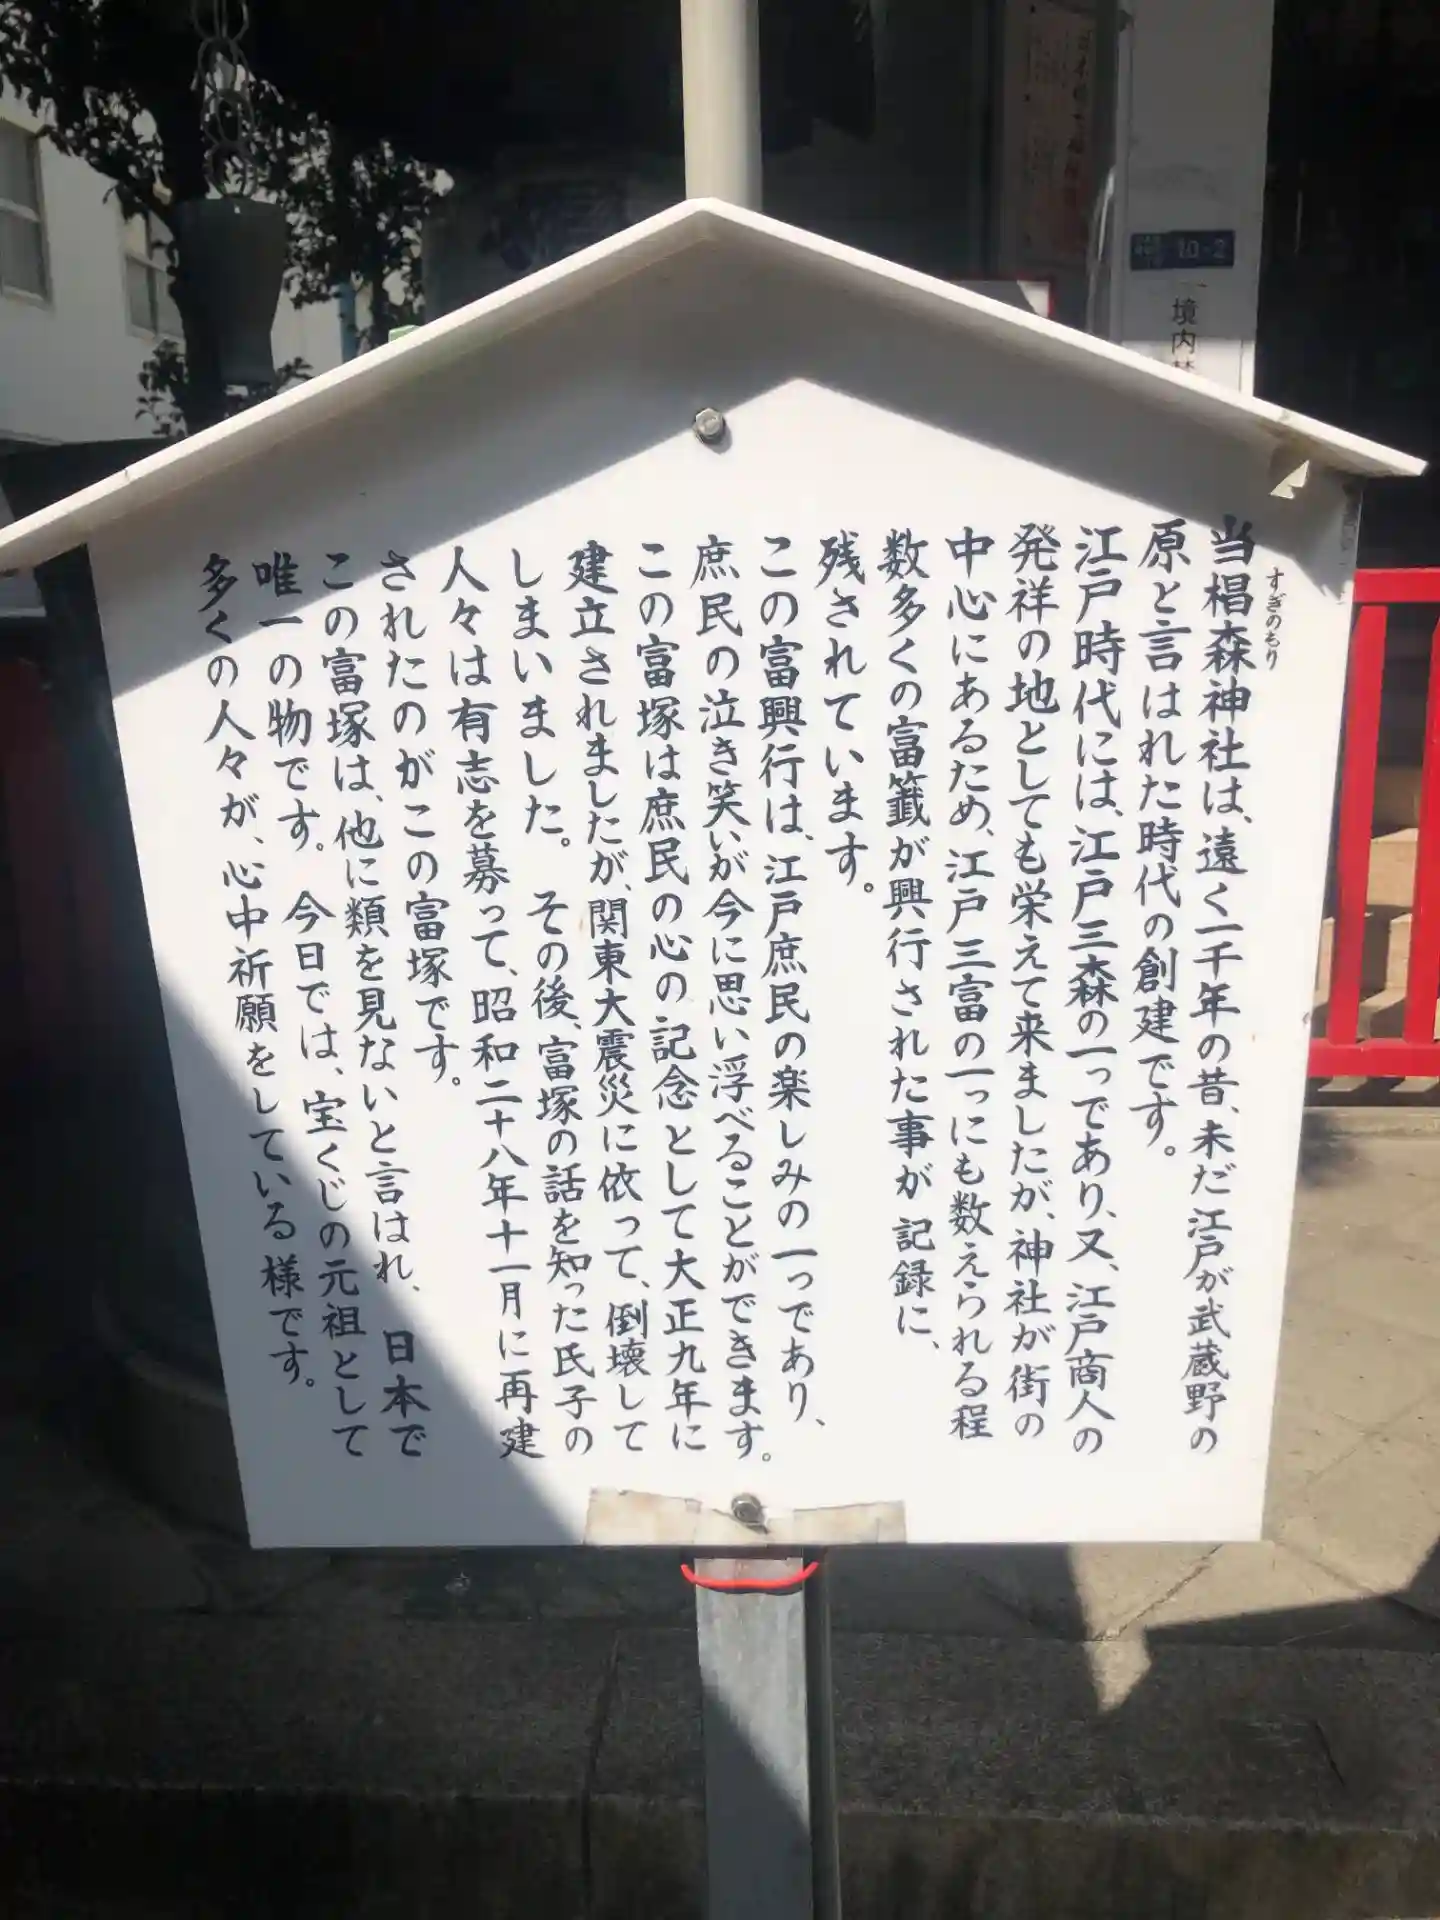 10-2
境内
当椙森神社は、遠く一千年の昔、未だ江戸が武蔵野の
すぎのもり
原と言はれた時代の創建です。
江戸時代には、江戸三森の一つであり、又、江戸商人の
発祥の地としても栄えて来ましたが、神社が街の
中心にあるため、江戸三富の一つにも数えられる程
数多くの富籤が興行された事が記録に、
残されています。
この富興行は、江戸庶民の楽しみの一つであり、
庶民の泣き笑いが今に思い浮べることができます。
この富塚は庶民の心の記念として大正九年に
建立されましたが、関東大震災に依って、倒壊して
しまいました。 その後、富塚の話を知った氏子の
人々は有志を募って、昭和二十八年十一月に再建
されたのがこの富塚です。
この富塚は、他に類を見ないと言はれ、日本で
唯一の物です。 今日では、宝くじの元祖として
多くの人々が、心中祈願をしている様です。